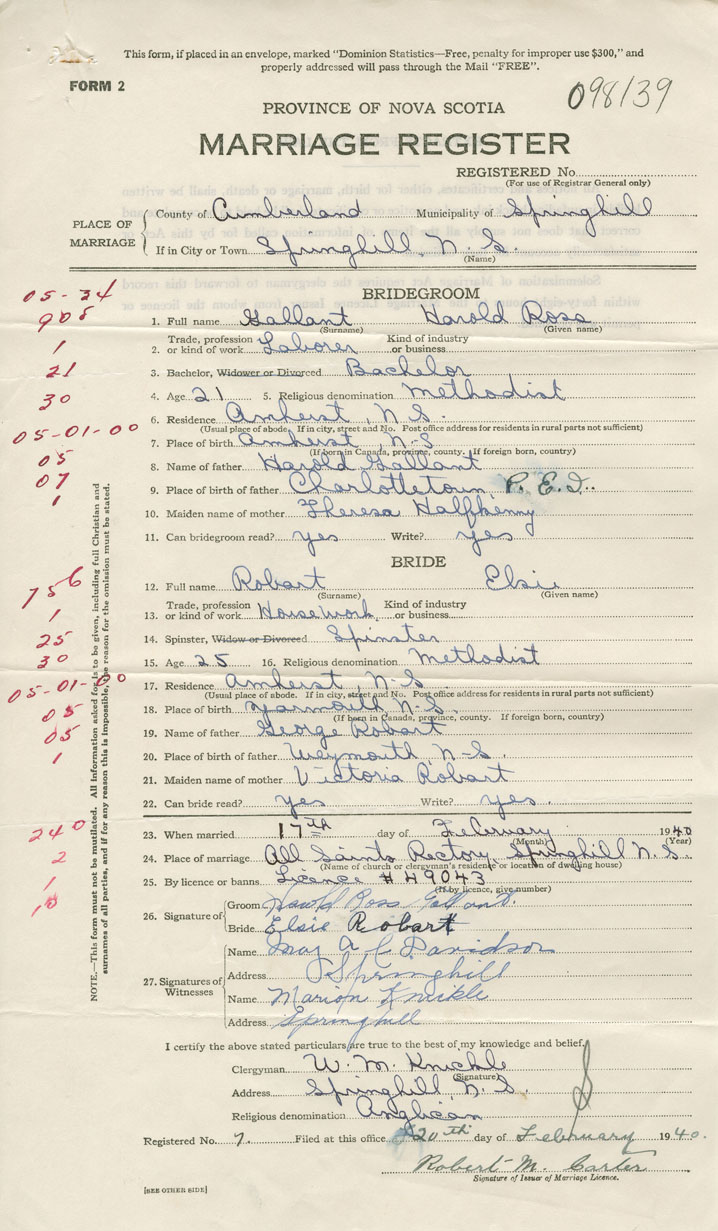 This form, if placed in an envelope, marked "Dominion Statistics—Free, penalty for improper use $300," and
properly addressed will pass through the Mail "FREE".
FORM 2
098139
PROVINCE OF NOVA SCOTIA
MARRIAGE REGISTER
REGISTERED No.
(For use of Registrar General only)
PLACE OF MARRIAGE
County of Cumberland Municipality of Springhill
If in City or Town Springhill, N. S.
(Name)
05-34
BRIDEGROOM
908
1. Full name Gallant Harold Ross
(Surname) (Given name)
1
2. Trade, profession or kind of work Laborer Kind of industry or business
21
3. Bachelor, Widower or Divorced Bachelor
30
4. Age 21 5. Religious denomination Methodist
6. Residence Amherst, N. S.
(Usual place of abode. If in city, street and No. Post office address for residents in rural parts not sufficient)
05-01-00
7. Place of birth Amherst, N-S
(If born in Canada, province, county. If foreign born, country)
05
8. Name of father Harold Gallant
07
9. Place of birth of father Charlottetown, P. E. I.
1
10. Maiden name of mother Theresa Halfkenny
11. Can bridegroom read? yes Write? yes
BRIDE
756
12. Full name Robart Elsie
(Surname) (Given name)
1
13. Trade, profession or kind of work Housework Kind of industry or business
25
14. Spinster, Widow or Divorced Spinster
30
15. Age 25 16. Religious denomination Methodist
05-01-00
17. Residence Amherst, N-S.
(Usual place of abode. If in city, street and No. Post office address for residents in rural parts not sufficient)
05
18. Place of birth Yarmouth N-S.
(If born in Canada, province, county. If foreign born, country)
05
19. Name of father George Robart
1
20. Place of birth of father Weymouth, N-S.
21. Maiden name of mother Victoria Robart
22. Can bride read? yes Write? yes.
240
23. When married 17th day of February 1940
(Month) (Year)
2
24. Place of marriage All Saints Rectory, Springhill N. S.
(Name of church or clergyman's residence or location of dwelling house)
1
25. By licence or banns Licence # 49043
(If by licence, give number)
26. Signature of
Groom Harold Ross Gallant.
Bride Elsie Robart
27. Signatures of Witnesses
Name A C Davidson
Address Springhill
Name Marion Knickle
Address Springhill
I certify the above stated particulars are true to the best of my knowledge and belief.
Clergyman W. M. Knickle
(Signature)
Address Springhill, N. S.
Religious denomination Anglican
Registered No. 7. Filed at this office 20th day of February 1940.
Robert M. Carter
Signature of Issuer of Marriage Licence.
[SEE OTHER SIDE]
NOTE.—This form must not be mutilated. All Information asked for is to be given, including full Christian and
surnames of all parties, and if for any reason this is impossible, the reason for the omission must be stated.